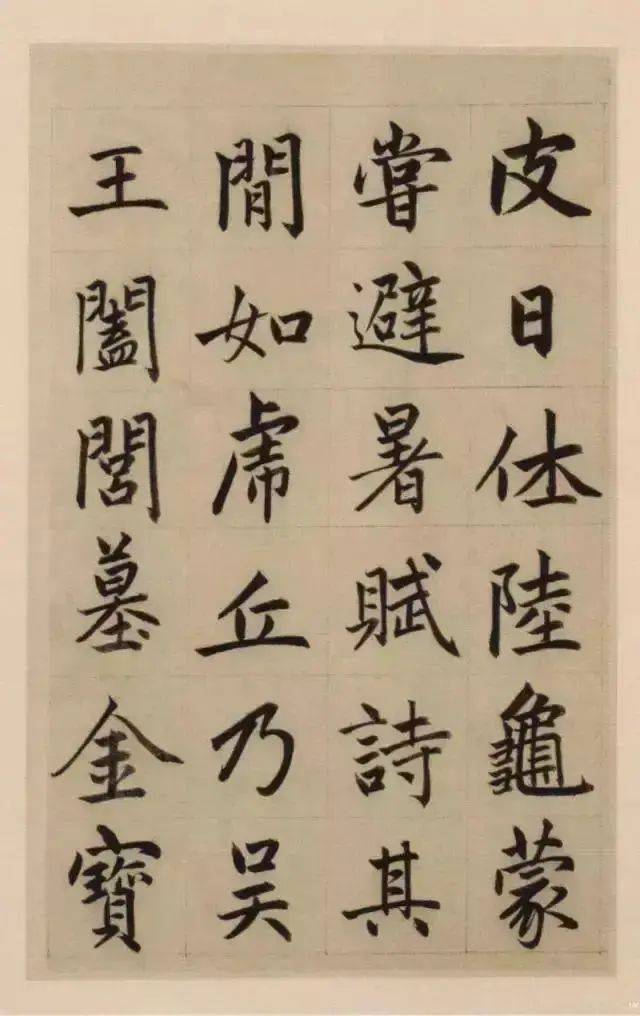 皮日休陸龜蒙
嘗避暑賦詩其
間如虎丘乃吳
王闔閭墓金寶